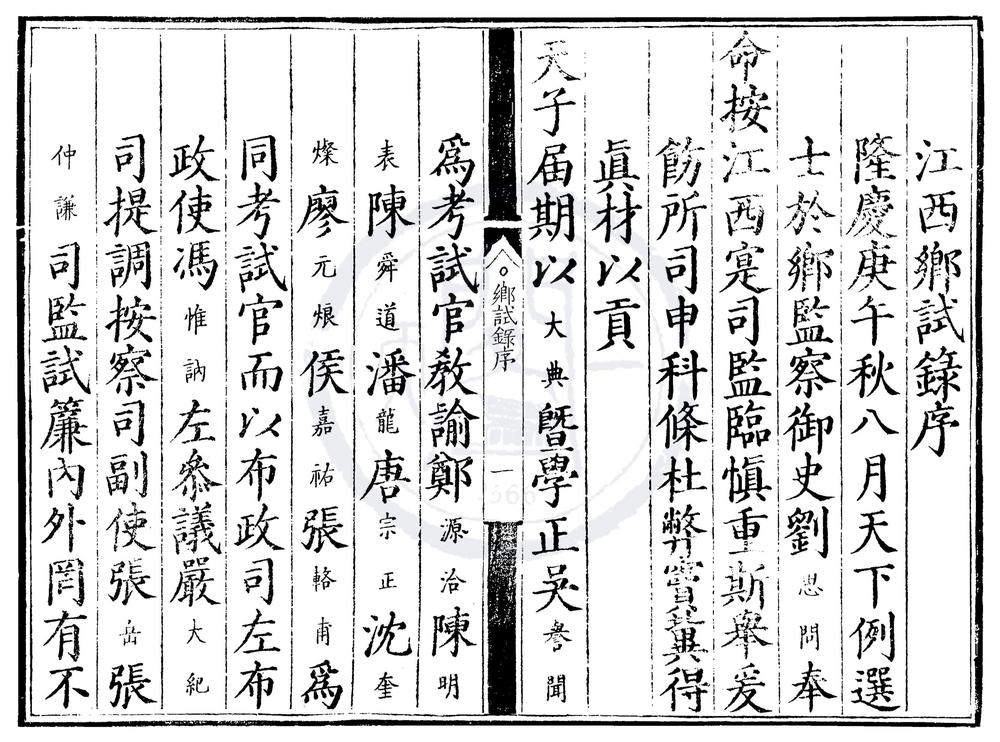 江西鄉試錄序
隆慶庚午秋八月天下例選
士於鄉監察御史劉思問奉
命按江西寔司監臨慎重斯舉爰
飭所司申科條杜弊竇冀得
眞材以貢
天子屆期以大典曁學正吳譽聞
鄉試錄序
一
爲考試官敎諭鄭源洽陳明
表陳舜道潘龍唐宗正沈奎
燦廖元烺侯嘉祐張輅甫爲
同考試官而以布政司左布
政使馮惟訥左叅議嚴大紀
司提調按察司副使張岳張
仲謙司監試簾內外罔有不